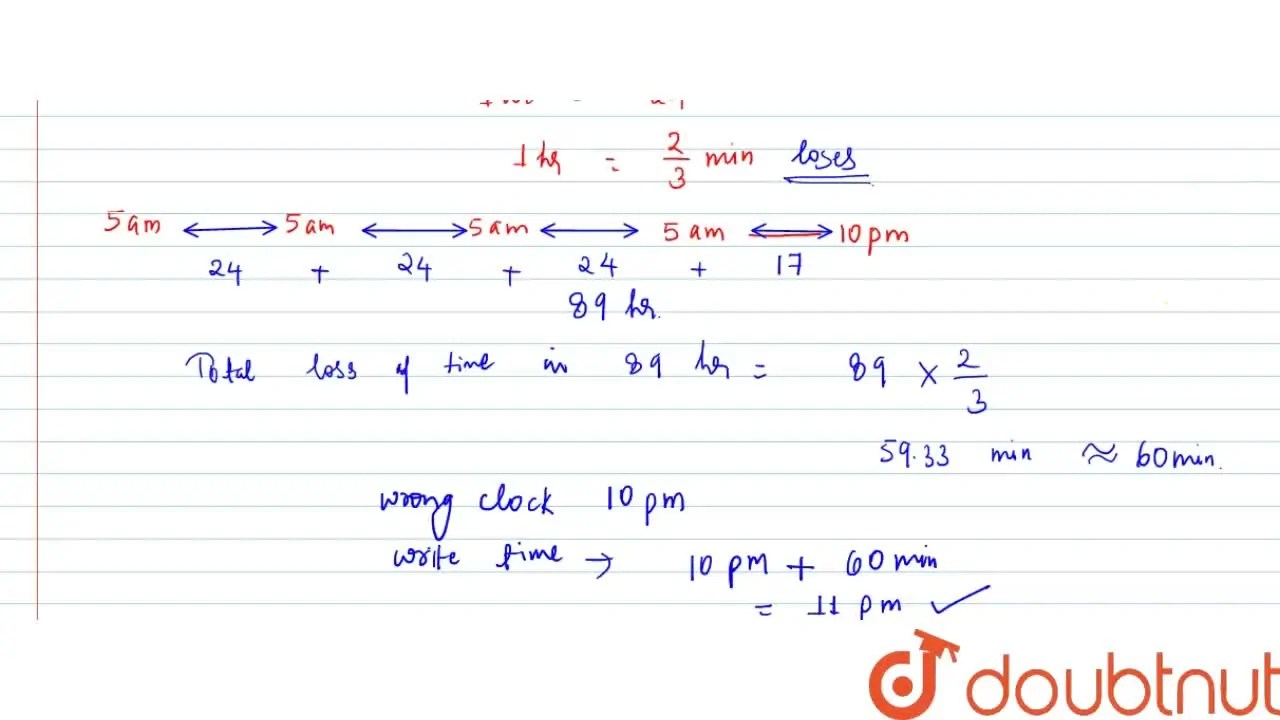 1 hr = 2/3 min loses
5 am ↔ 5 am ↔ 5 am ↔ 5 am ↔ 10 pm
24 + 24 + 24 + 17
89 hr.
Total loss of time in 89 hr = 89 × 2/3
59.33 min ≈ 60 min.
wrong clock 10 pm
write time → 10 pm + 60 min
= 11 pm ✓
doubtnut